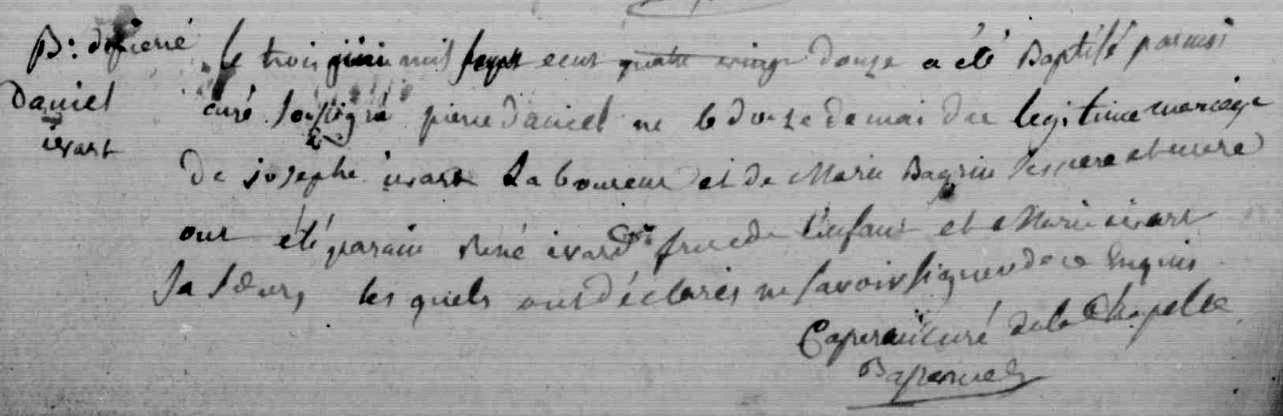 B: de pierre
Daniel
ivart
le trois juin mil sept cent quatre vingt douze a été Baptisé par moi
curé soussigné pierre daniel ne le douze de mai du legitime mariage
de josephe ivart Laboureur et de Marie ses pere et mere
ont été parain René ivard frere de L'enfant et Marie ivart
sa soeur, les quels ont déclarés ne savoir signer de ce Enquis
curé de la Chapelle